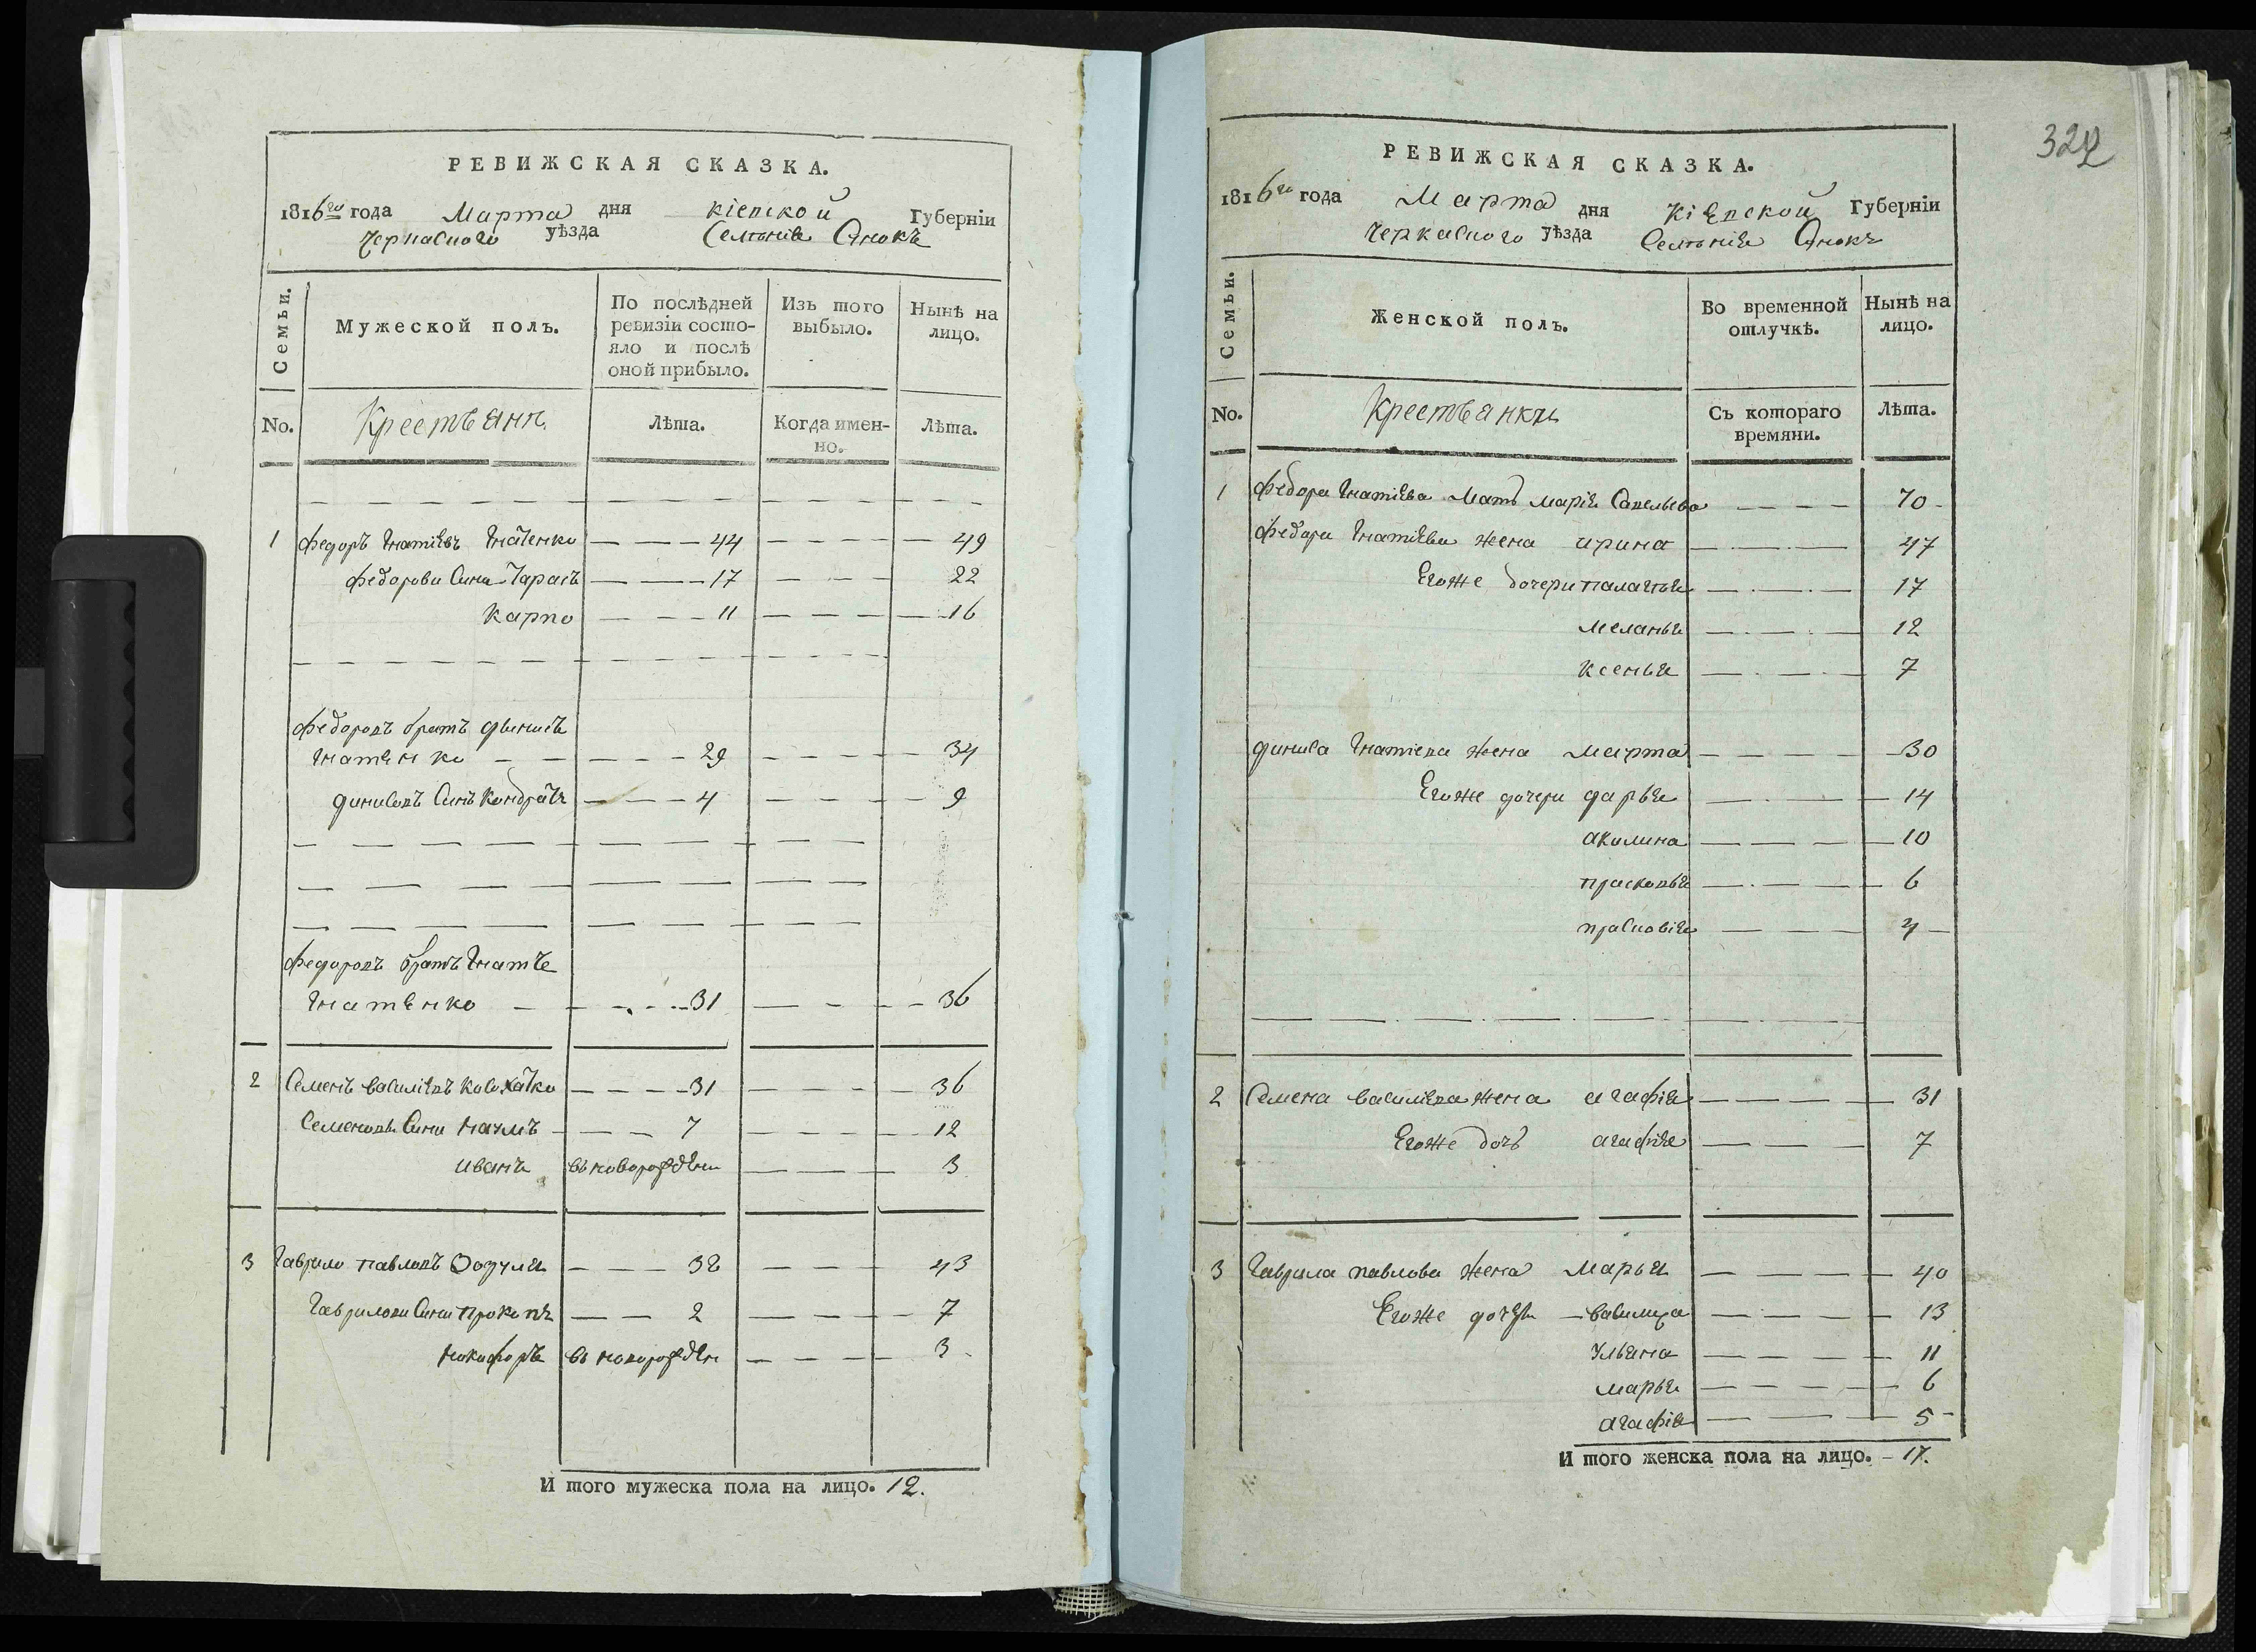 РЕВИЖСКАЯ СКАЗКА.
1816го года Марта дня Кіевской Губерніи
Черкасского уѣзда Селенія
Семьи.
Мужеской полъ.
По послѣдней ревизіи состо-
яло и послѣ
оной прибыло.
Изъ того
выбыло.
Нынѣ на
лицо.
No.
Крестьяни
Лѣта.
Когда имен-
но.
Лѣта.
1 Федоръ Гнатіевъ Гнатенко 44 49
Федорови Сини Тарасъ 17 22
Карпо 11 16
Федоровъ братъ Финисъ
Гнатенко 29 34
Финисовъ Синъ Кондратъ 4 9
Федоровъ братъ Гнатъ
Гнатенко 31 36
2 Семенъ Василіевъ 31 36
Семеновъ Сини Наумъ 7 12
Иванъ въ новорожден 3
3 Гаврило Павловъ 38 43
Гаврилови Сини Прокипъ 2 7
Никифоръ въ новорожден 3
И того мужеска пола на лицо. 12.
322
РЕВИЖСКАЯ СКАЗКА.
1816го года Марта дня Кіевской Губерніи
Черкасского уѣзда Селенія
Семьи.
Женской полъ.
Во временной
отлучкѣ.
Нынѣ на
лицо.
No.
Крестьянки
Съ котораго
времяни.
Лѣта.
1 Федора Гнатіева Мать Марія Савельева 70
Федора Гнатіева жена Ирина 47
Егоже дочери Палагья 17
Меланья 12
Ксенья 7
Финиса Гнатіева жена Марта 30
Егоже дочери Дарья 14
Акилина 10
Прасковья 6
4
2 Семена Василіева жена Агафія 31
Егоже дочь Агафія 7
3 Гаврила Павлова жена Марья 40
Егоже дочери Василиса 13
Ульяна 11
Марья 6
Агафія 5
И того женска пола на лицо. 17.